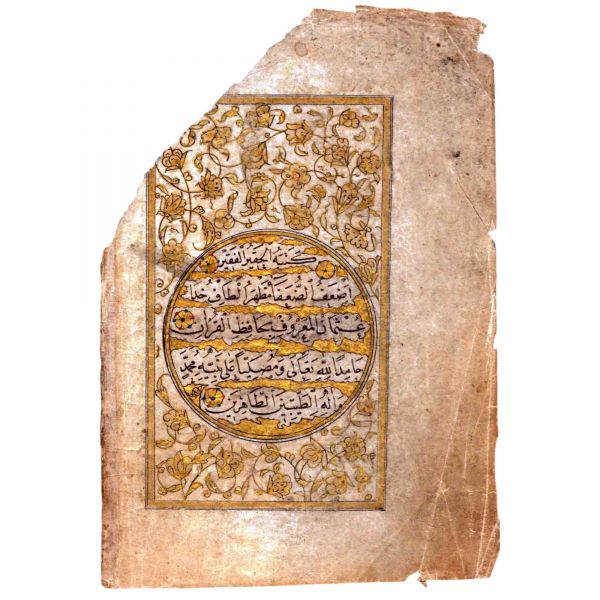 كتبه الحقير الفقير
اضعف الضعفا مظهر الطاف خدا
عثمان المعروف بحافظ القرآن
حامدا لله تعالى ومصليا على نبيه محمد
وآله الطيبين الطاهرين